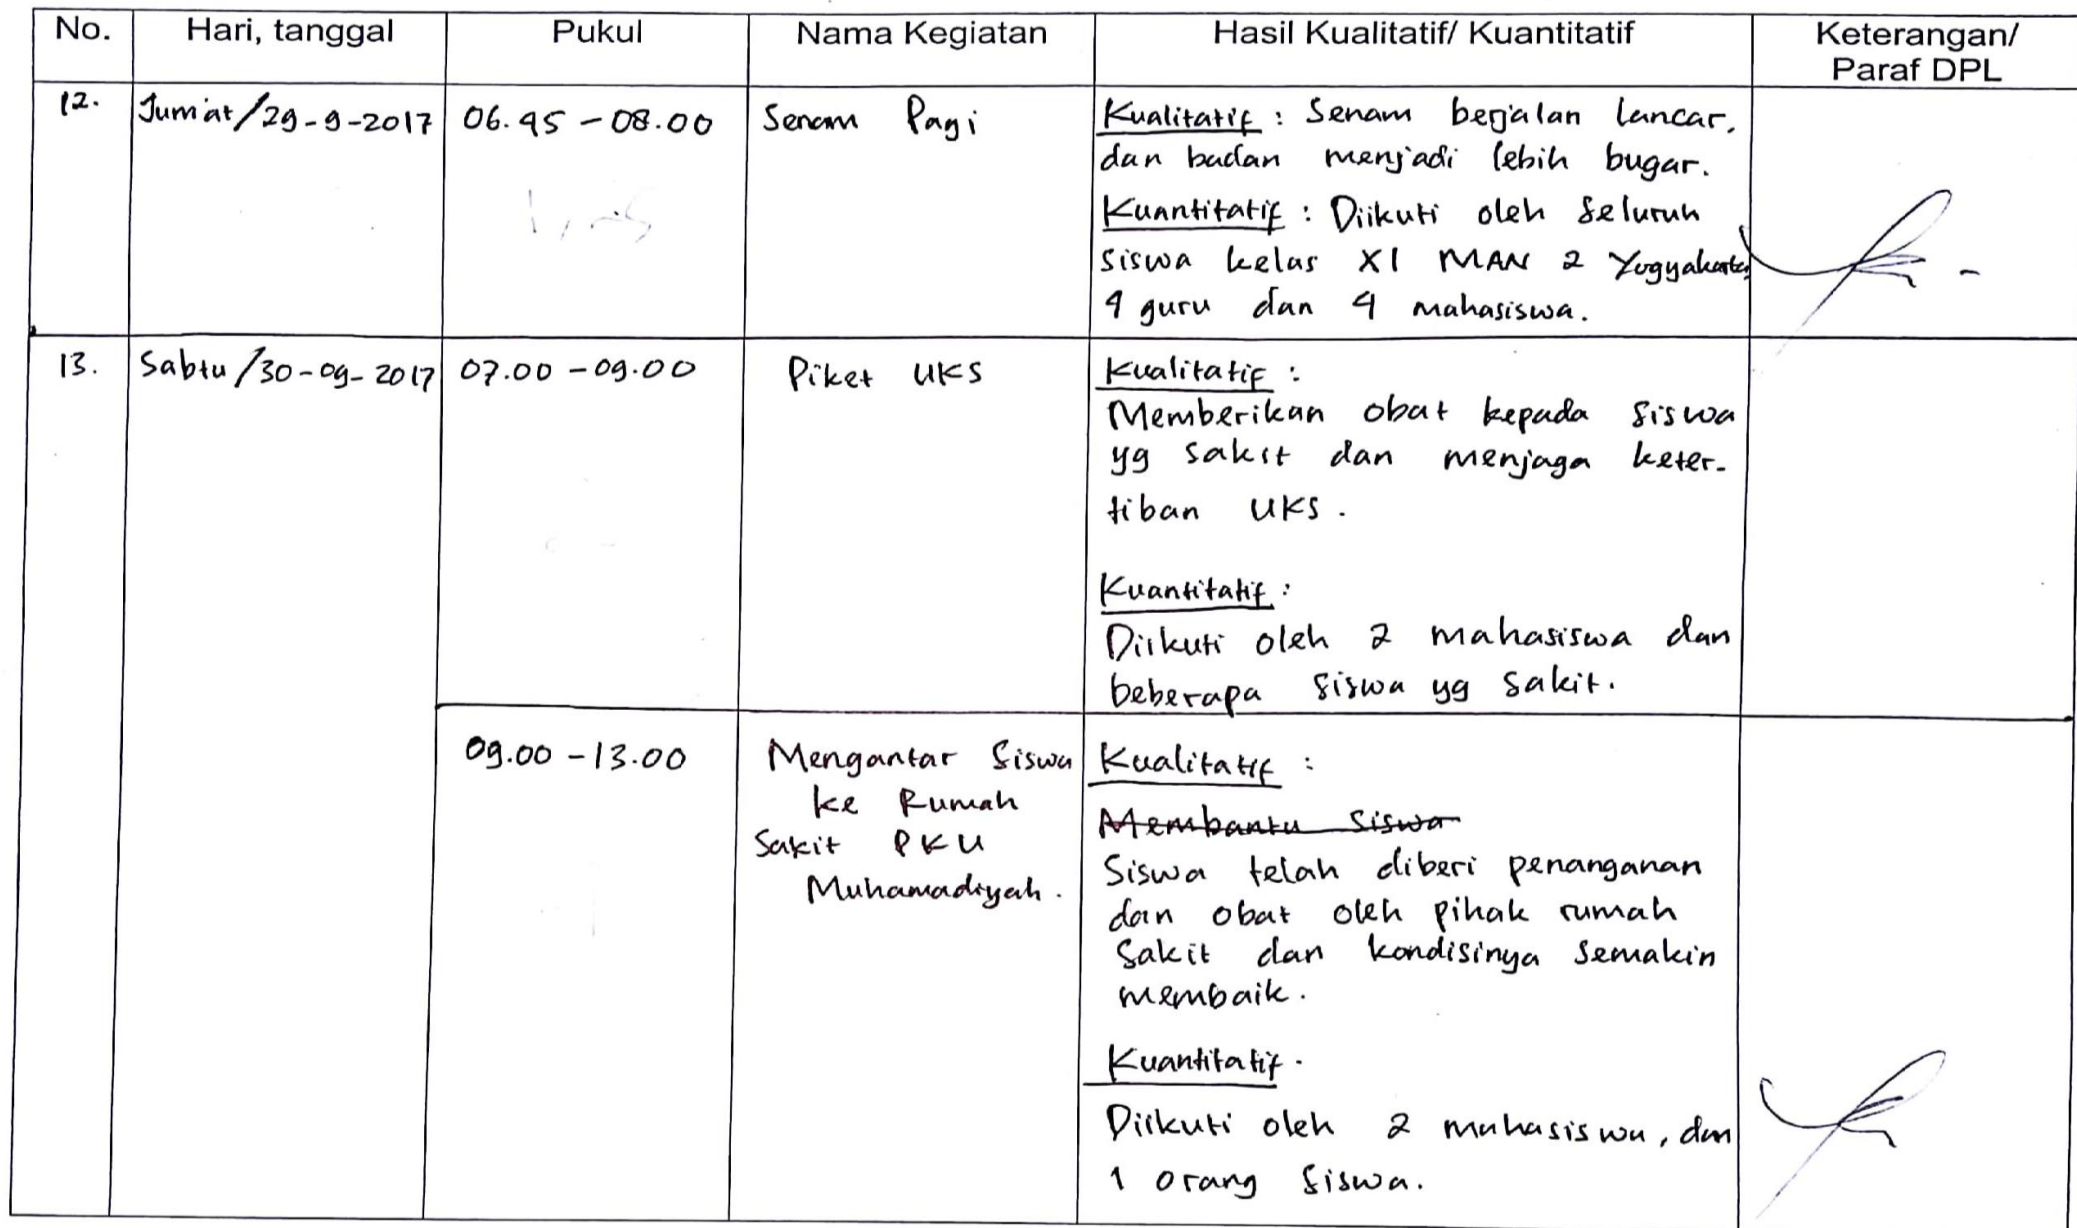 No. Hari, tanggal Pukul Nama Kegiatan Hasil Kualitatif/ Kuantitatif Keterangan/
Paraf DPL
12. Jum'at/29-9-2017 06.45 - 08.00 Senam Pagi Kualitatif : Senam berjalan lancar,
dan badan menjadi lebih bugar.
Kuantitatif : Diikuti oleh seluruh
siswa kelas XI MAN 2 Yogyakarta
4 guru dan 4 mahasiswa.
13. Sabtu/30-09-2017 07.00 - 09.00 Piket UKS Kualitatif :
Memberikan obat kepada siswa
yg sakit dan menjaga keter-
tiban UKS.
Kuantitatif :
Diikuti oleh 2 mahasiswa dan
beberapa siswa yg sakit.
09.00 - 13.00 Mengantar Siswa Kualitatif :
ke Rumah
Membantu siswa
Sakit PKU
Siswa telah diberi penanganan
Muhamadiyah.
dan obat oleh pihak rumah
sakit dan kondisinya semakin
membaik.
Kuantitatif.
Diikuti oleh 2 mahasiswa, dan
1 orang siswa.